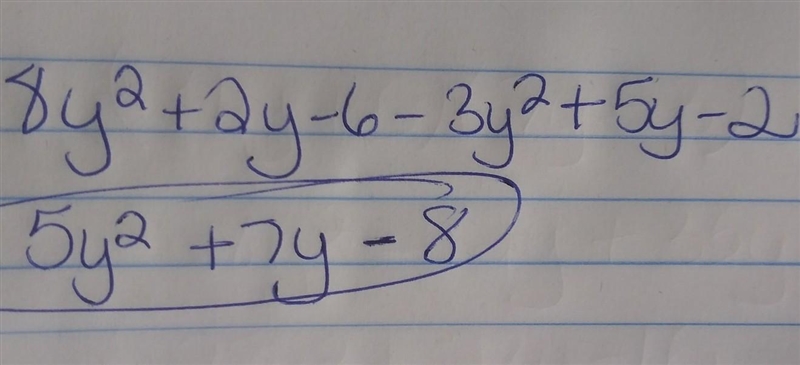 8y²+2y-6-3y²+5y-2
5y² +7y - 8